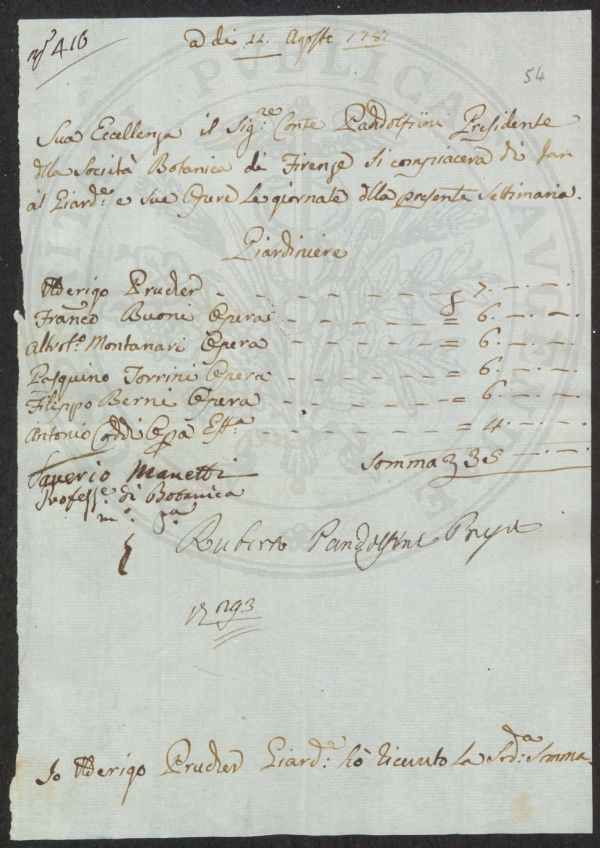 N.º 416
A dì 11. Agosto 1781
54
Sua Eccellenza il Sig.re Conte Pandolfini Presidente
della Società Botanica di Firenze si compiacerà di far
al Giard.e e sue Opere le giornate della presente Settimana.
Giardiniere
Alderigo Prucher - - - - - - - 7. - . -
Franco Buoni Opera - - - - - = 6. - . -
Montanari Opera - - - - - = 6. - . -
Pasquino Torrini Opera - - - - - = 6. - . -
Filippo Berni Opera - - - - - = 6. - . -
Antonio Coddi - - - - = 4. - . -
Somma 35 - . -
Saverio Manetti
Profess.e di Botanica
m.o p.a
Ruberto Pandolfini
293
Io Alderigo Prucher Giard.e hò ricevuto la Sud.a Somma